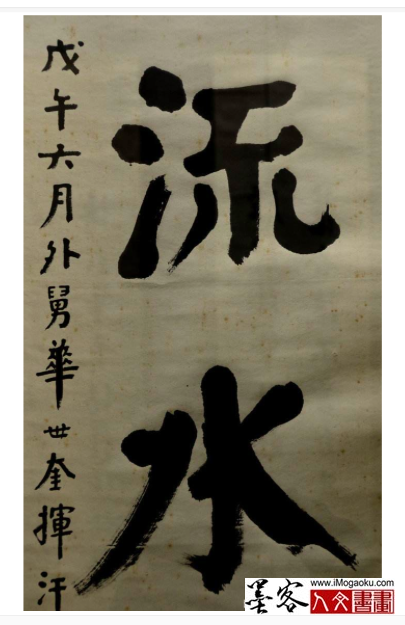 流水
戊午六月外舅華世奎揮汗
墨客
www.iMogaoku.com
人文書畫